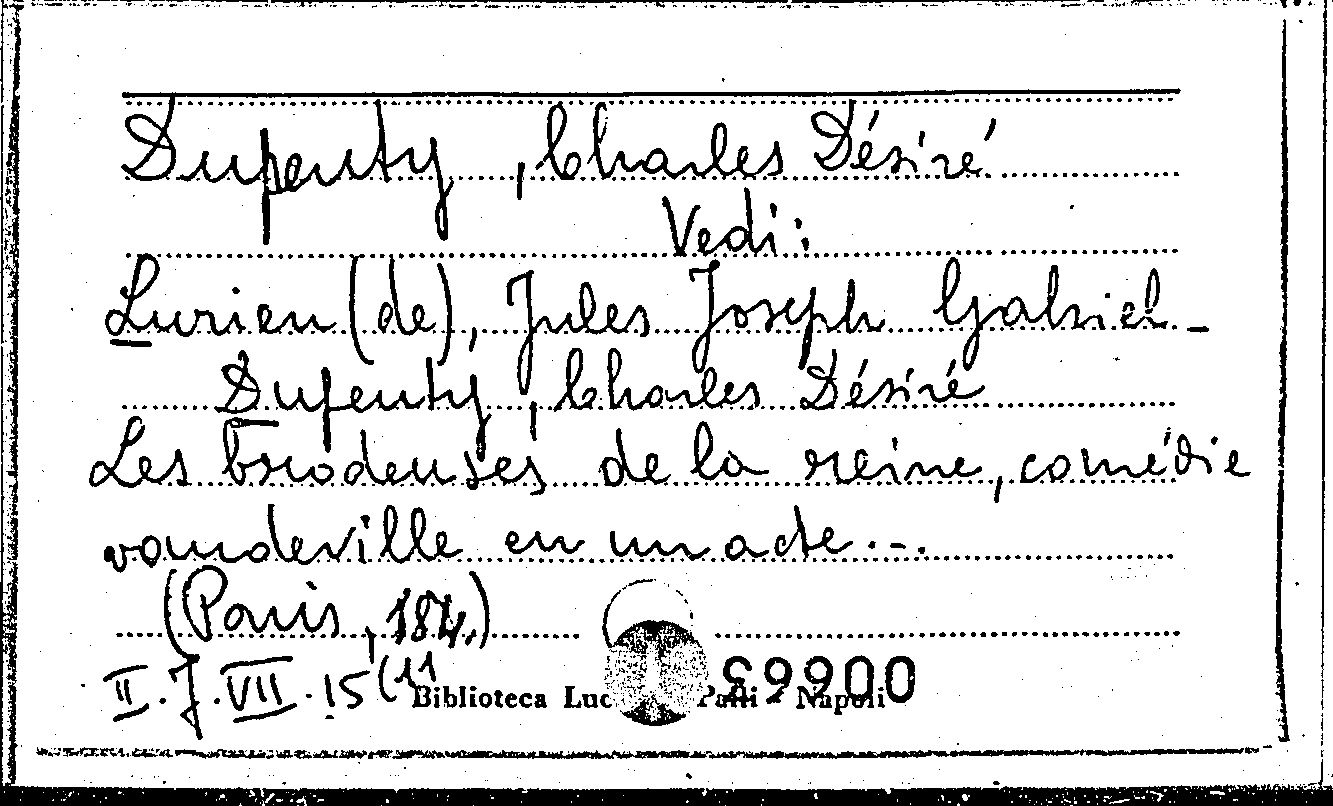 Dupeuty, Charles Désiré
Vedi:
Lurieu (de), Jules Joseph Gabriel -
Dupeuty, Charles Désiré
Les brodeuses de la reine, comédie
vaudeville en un acte...
(Paris, 184.)
II. J. VII. 15 (11
Biblioteca Luc Palli - Napoli